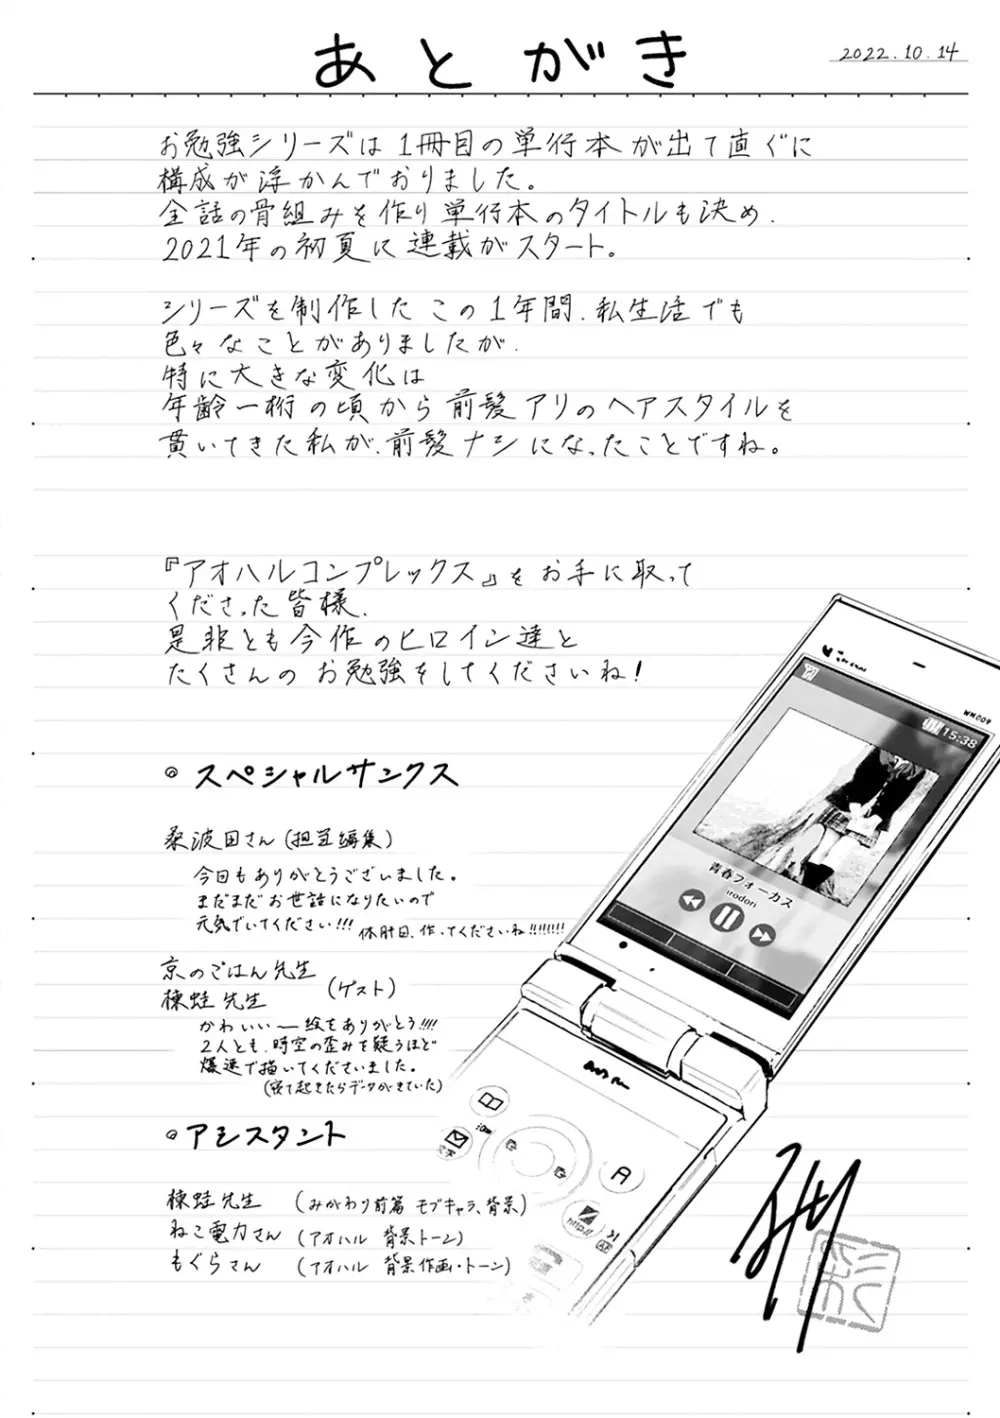 あとがき
2022.10.14
お勉強シリーズは1冊目の単行本が出て直ぐに
構成が浮かんでおりました。
全話の骨組みを作り単行本のタイトルも決め、
2021年の初夏に連載がスタート。
シリーズを制作したこの1年間、私生活でも
色々なことがありましたが、
特に大きな変化は
年齢一桁の頃から前髪アリのヘアスタイルを
貫いてきた私が、前髪ナシになったことですね。
『アオハルコンプレックス』をお手に取って
くださった皆様、
是非とも今作のヒロイン達と
たくさんのお勉強をしてくださいね!
WM009
15:38
青春フォーカス
irodori
◎スペシャルサンクス
桑波田さん(担当編集)
今回もありがとうございました。
まだまだお世話になりたいので
元気でいてください!!! 休肝日、作ってくださいね!!!!!!!
京のごはん先生
棟蛙先生
(ゲスト)
かわいいー絵をありがとう!!!!
2人とも、時空の歪みを疑うほど
爆速で描いてくださいました。
(寝て起きたらデータがきていた)
◎アシスタント
棟蛙先生 (みがわり前篇 モブキャラ、背景)
ねこ電力さん (アオハル 背景トーン)
もぐらさん (アオハル 背景作画・トーン)
文字
A
http://